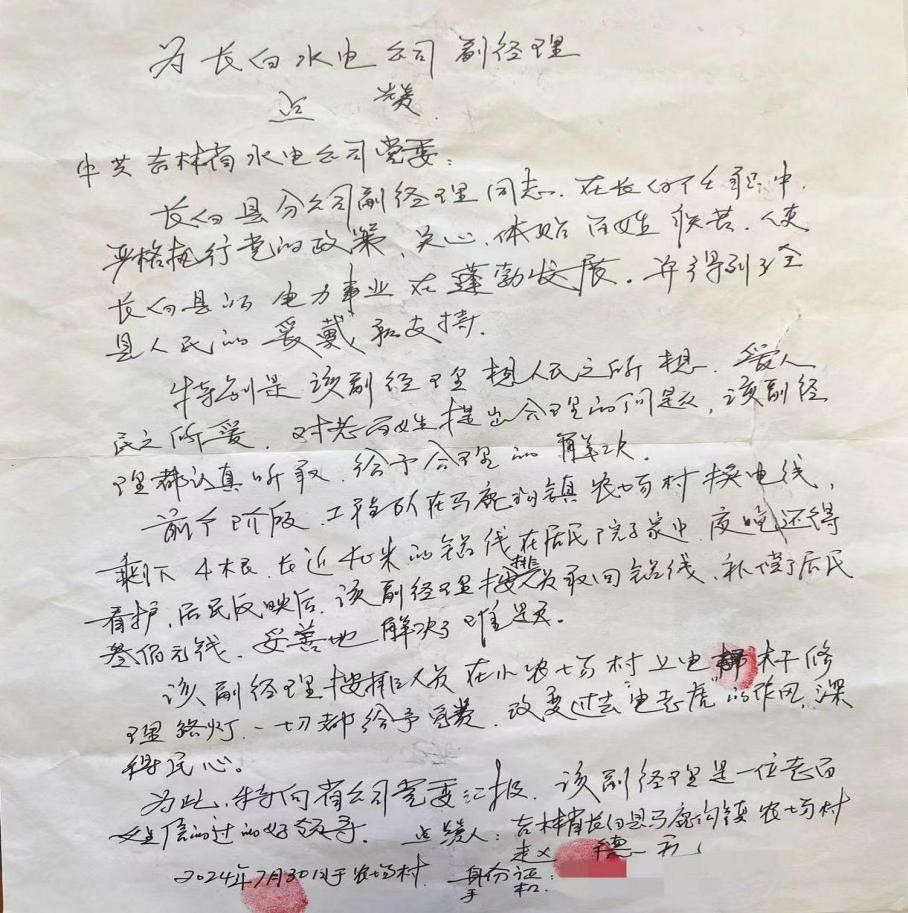 为长白水电公司副经理
点赞
中共吉林省水电公司党委：
长白县分公司副经理同志．在长白任职中．
严格执行党的政策、关心、体贴百姓疾苦．使
长白县的电力事业在蓬勃发展．并得到了全
县人民的爱戴和支持．
特别是该副经理想人民之所想．爱人
民之所爱．对老百姓提出合理的问题，该副经
理都认真听取．给予合理的解决．
前个阶段．工程队在马鹿沟镇农场村换电线，
剩下4根．长近40米的铝线在居民院子家中．夜晚还得
看护．居民反映后．该副经理按排人员取回铝线、补偿了居民
叁佰元钱．妥善地解决了难题．
该副经理按排人员在小农场村上电杆修
理路灯．一切都给予免费．改变过去"电老虎"的作风，深
得民心。
为此．特向省公司党委汇报．该副经理是一位老百
姓信的过的好领导．点赞人：吉林省长白县马鹿沟镇农场村
德
2024年7月30日于农场村．身份证
手机